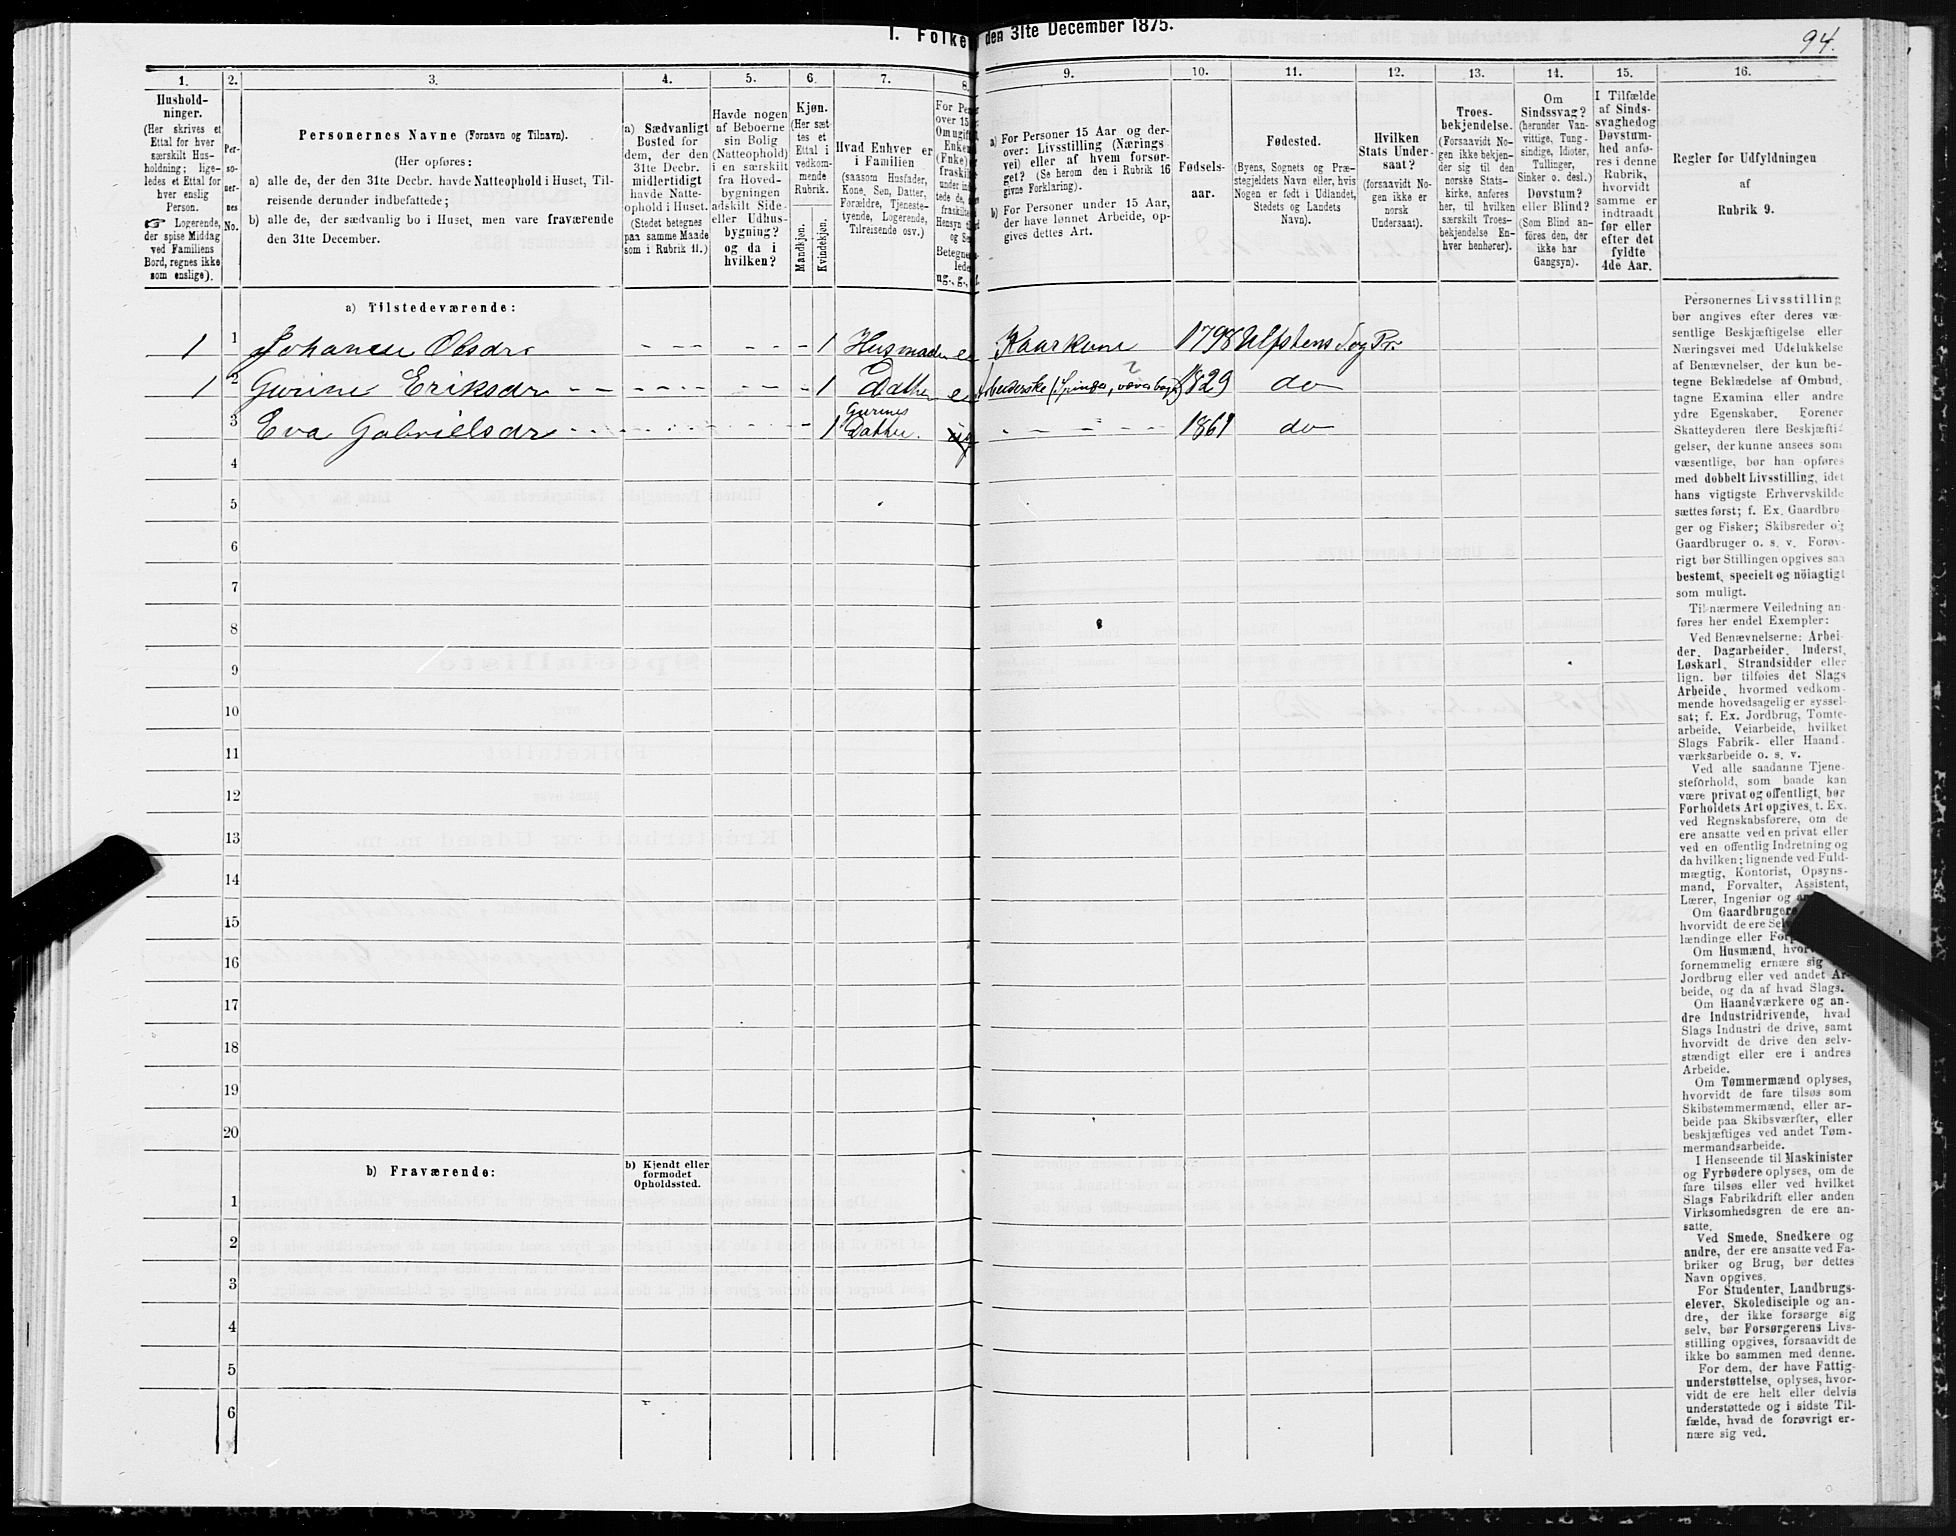 I. Folke
den 31te December 1875.
94.
1.
2.
3.
4.
5.
6.
7.
8.
9.
10.
11.
12.
13.
14.
15.
16.
Hushold-
ninger.
(Her skrives et
Ettal for hver
særskilt Hus-
holdning; lige-
ledes et Ettal for
hver enslig
Person.
☞ Logerende,
der spise Middag
ved Familiens
Bord, regnes ikke
som enslige).
Per-
so-
ner-
nes
No.
Personernes Navne (Fornavn og Tilnavn).
(Her opføres:
a) alle de, der den 31te Decbr. havde Natteophold i Huset, Til-
reisende derunder indbefattede;
b) alle de, der sædvanlig bo i Huset, men vare fraværende
den 31te December.
a) Sædvanligt
Bosted for
dem, der den
31te Decbr.
midlertidigt
havde Natte-
ophold i Huset.
(Stedet betegnes
paa samme Maade
som i Rubrik 11.)
Havde nogen
af Beboerne
sin Bolig
(Natteophold)
i en særskilt
fra Hoved-
bygningen
adskilt Side-
eller Udhus-
bygning?
og da i
hvilken?
Kjøn.
(Her sæt-
tes et
Ettal i
vedkom-
mende
Rubrik.
Mandkjøn.
Kvindekjøn.
Hvad Enhver er
i Familien
(saasom Husfader,
Kone, Søn, Datter,
Forældre, Tjeneste-
tyende, Logerende,
Tilreisende osv.)
For Pe
over 15
Om ugift
Enke
(Enke)
fraskil
under ind
tede de,
fraskilt
Hensyn t
og Se
Betegne
lede
ug., g.,
a) For Personer 15 Aar og der-
over: Livsstilling (Nærings-
vei) eller af hvem forsør-
get? (Se herom den i Rubrik 16
givne Forklaring).
b) For Personer under 15 Aar,
der have lønnet Arbeide, op-
gives dettes Art.
Fødsels-
aar.
Fødested.
(Byens, Sognets og Præ-
stegjeldets Navn eller, hvis
Nogen er født i Udlandet,
Stedets og Landets
Navn).
Hvilken
Stats Under-
saat?
(forsaavidt No-
gen ikke er
norsk
Undersaat).
Troes-
bekjendelse.
(Forsaavidt No-
gen ikke bekjen-
der sig til den
norske Stats-
kirke, anføres
her, til hvilken
særskilt Troes-
bekjendelse En-
hver henhører).
Om
Sindssvag?
(herunder Van-
vittige, Tung-
sindige, Idioter,
Tullinger,
Sinker o. desl.)
Døvstum?
eller Blind?
(Som Blind an-
føres den, der
ikke har
Gangsyn).
I Tilfælde
af Sinds-
svaghed og
Døvstum-
hed anfø-
res i denne
Rubrik,
hvorvidt
samme er
indtraadt
før eller
efter det
fyldte
4de Aar.
Regler for Udfyldningen
af
Rubrik 9.
a) Tilstedeværende:
1 1 Johanne Olsdr - - - - - - 1 Husmoder e Kaarkone 1798 Ulfstens S og Pr.
1 2 Gurine Eriksdr - - - - - - 1 Datter e Arbeiderske (Spinder, 1829 do
3 Eva Gabrielsdr - - - - - - 1 Gurines
Datter. ug - - - - - 1861 do
4
5
6
7
8
9
10
11
12
13
14
15
16
17
18
19
20
b) Fraværende:
b) Kjendt eller
formodet
Opholdssted.
1
2
3
4
5
6
Personernes Livsstilling
bør angives efter deres væ-
sentlige Beskjæftigelse eller
Næringsvei med Udelukkelse
af Benævnelser, der kun be-
tegne Beklædelse af Ombud,
tagne Examina eller andre
ydre Egenskaber. Forener
Skatteyderen flere Beskjæfti-
gelser, der kunne ansees som
væsentlige, bør han opføres
med dobbelt Livsstilling, idet
hans vigtigste Erhvervskilde
sættes først; f. Ex. Gaardbru-
ger og Fisker; Skibsreder og
Gaardbruger o. s. v. Forøv-
rigt bør Stillingen opgives saa
bestemt, specielt og nöiagtigt
som muligt.
Til nærmere Veiledning an-
føres her endel Exempler:
Ved Benævnelserne: Arbei-
der, Dagarbeider, Inderst,
Løskarl, Strandsidder eller
lign. bør tilføies det Slags
Arbeide, hvormed vedkom-
mende hovedsagelig er syssel-
sat; f. Ex. Jordbrug, Tomte-
arbeide, Veiarbeide, hvilket
Slags Fabrik- eller Haand-
værksarbeide o. s. v.
Ved alle saadanne Tjene-
steforhold, som baade kan
være privat og offentligt, bør
Forholdets Art opgives, t. Ex.
ved Regnskabsførere, om de
ere ansatte ved en privat eller
ved en offentlig Indretning og
da hvilken; lignende ved Fuld-
mægtig, Kontorist, Opsyns-
mand, Forvalter, Assistent,
Lærer, Ingeniør og
Om Gaardbrugere
hvorvidt de ere Sel
lændinge eller
Om Husmænd,
fornemmelig ernære sig
Jordbrug eller ved andet Ar-
beide, og da af hvad Slags.
Om Haandværkere og an-
dre Industridrivende, hvad
Slags Industri de drive, samt
hvorvidt de drive den selv-
stændigt eller ere i andres
Arbeide.
Om Tømmermænd oplyses,
hvorvidt de fare tilsøs som
Skibstømmermænd, eller ar-
beide paa Skibsværfter, eller
beskjæftiges ved andet Tøm-
mermandsarbeide.
I Henseende til Maskinister
og Fyrbødere oplyses, om de
fare tilsøs eller ved hvilket
Slags Fabrikdrift eller anden
Virksomhedsgren de ere an-
satte.
Ved Smede, Snedkere og
andre, der ere ansatte ved Fa-
briker og Brug, bør dettes
Navn opgives.
For Studenter, Landbrugs-
elever, Skoledisciple og an-
dre, der ikke forsørge sig
selv, bør Forsørgerens Livs-
stilling opgives, forsaavidt de
ikke bo sammen med denne.
For dem, der have Fattig-
understøttelse, oplyses, hvor-
vidt de ere helt eller delvis
understøttede og i sidste Til-
fælde, hvad de forøvrigt er-
nære sig ved.